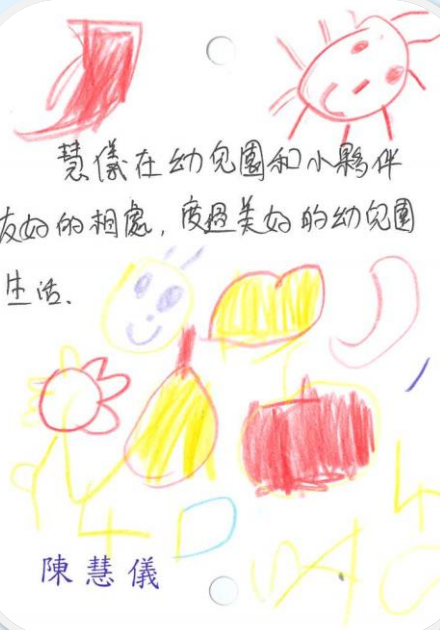 慧儀在幼兒園和小夥伴
友好的相處，度過美好的幼兒園
生活.
陳慧儀